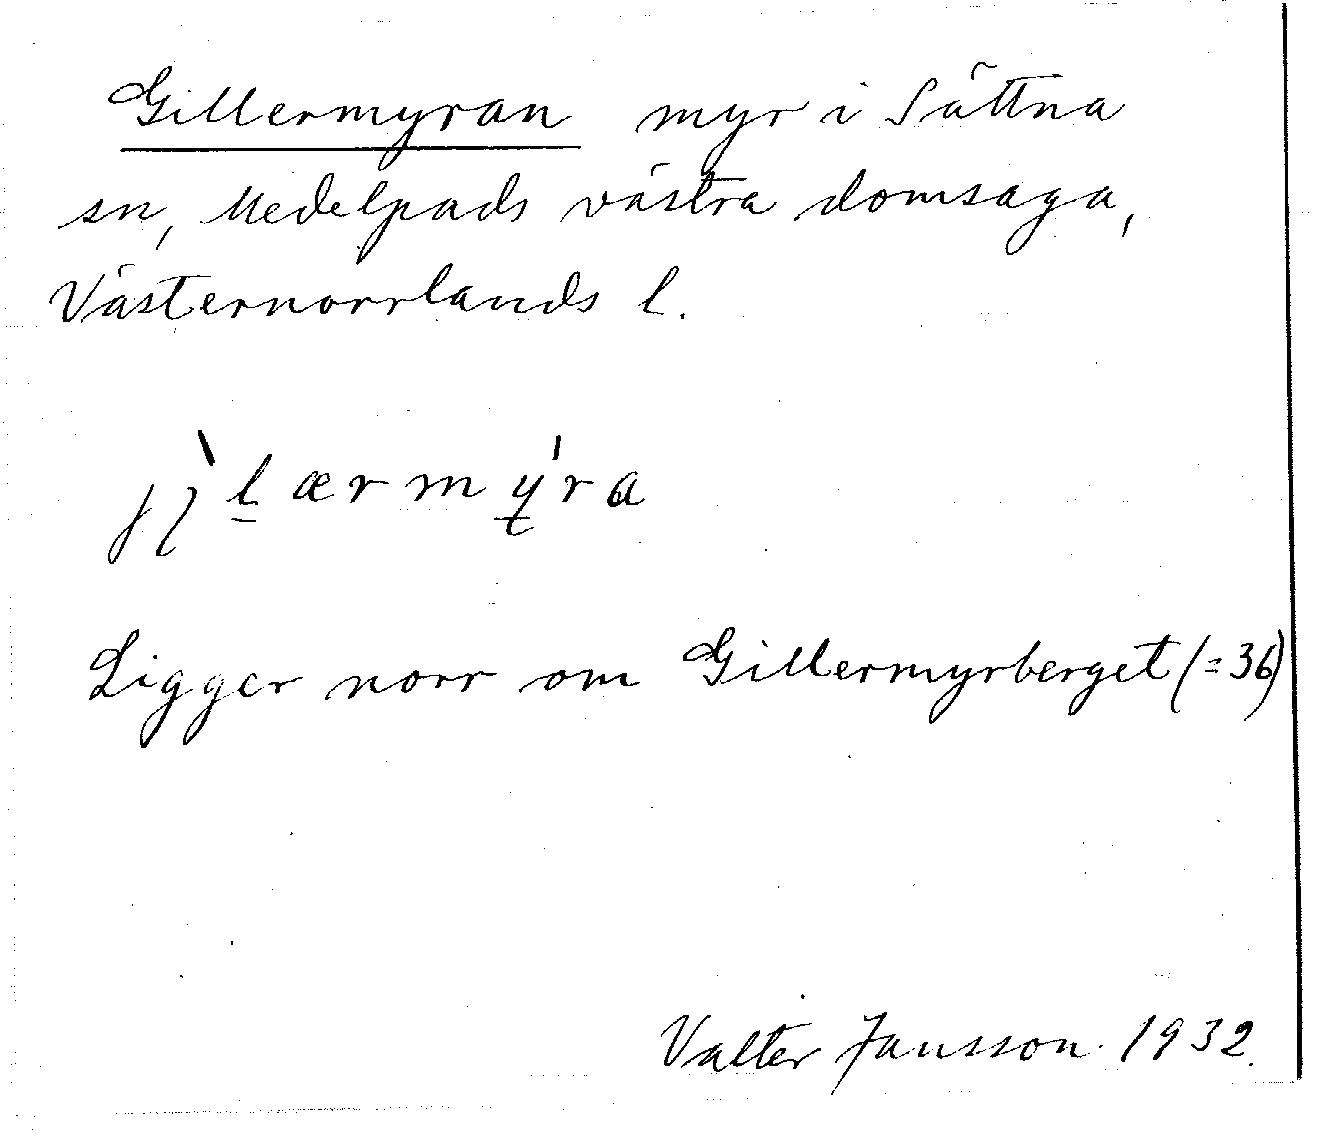 Gillermyran myr i Sättna
sn, Medelpads västra domsaga,
Västernorrlands l.
jìlærmýra
Ligger norr om Gillermyrberget (=36)
Valter Jansson 1932.